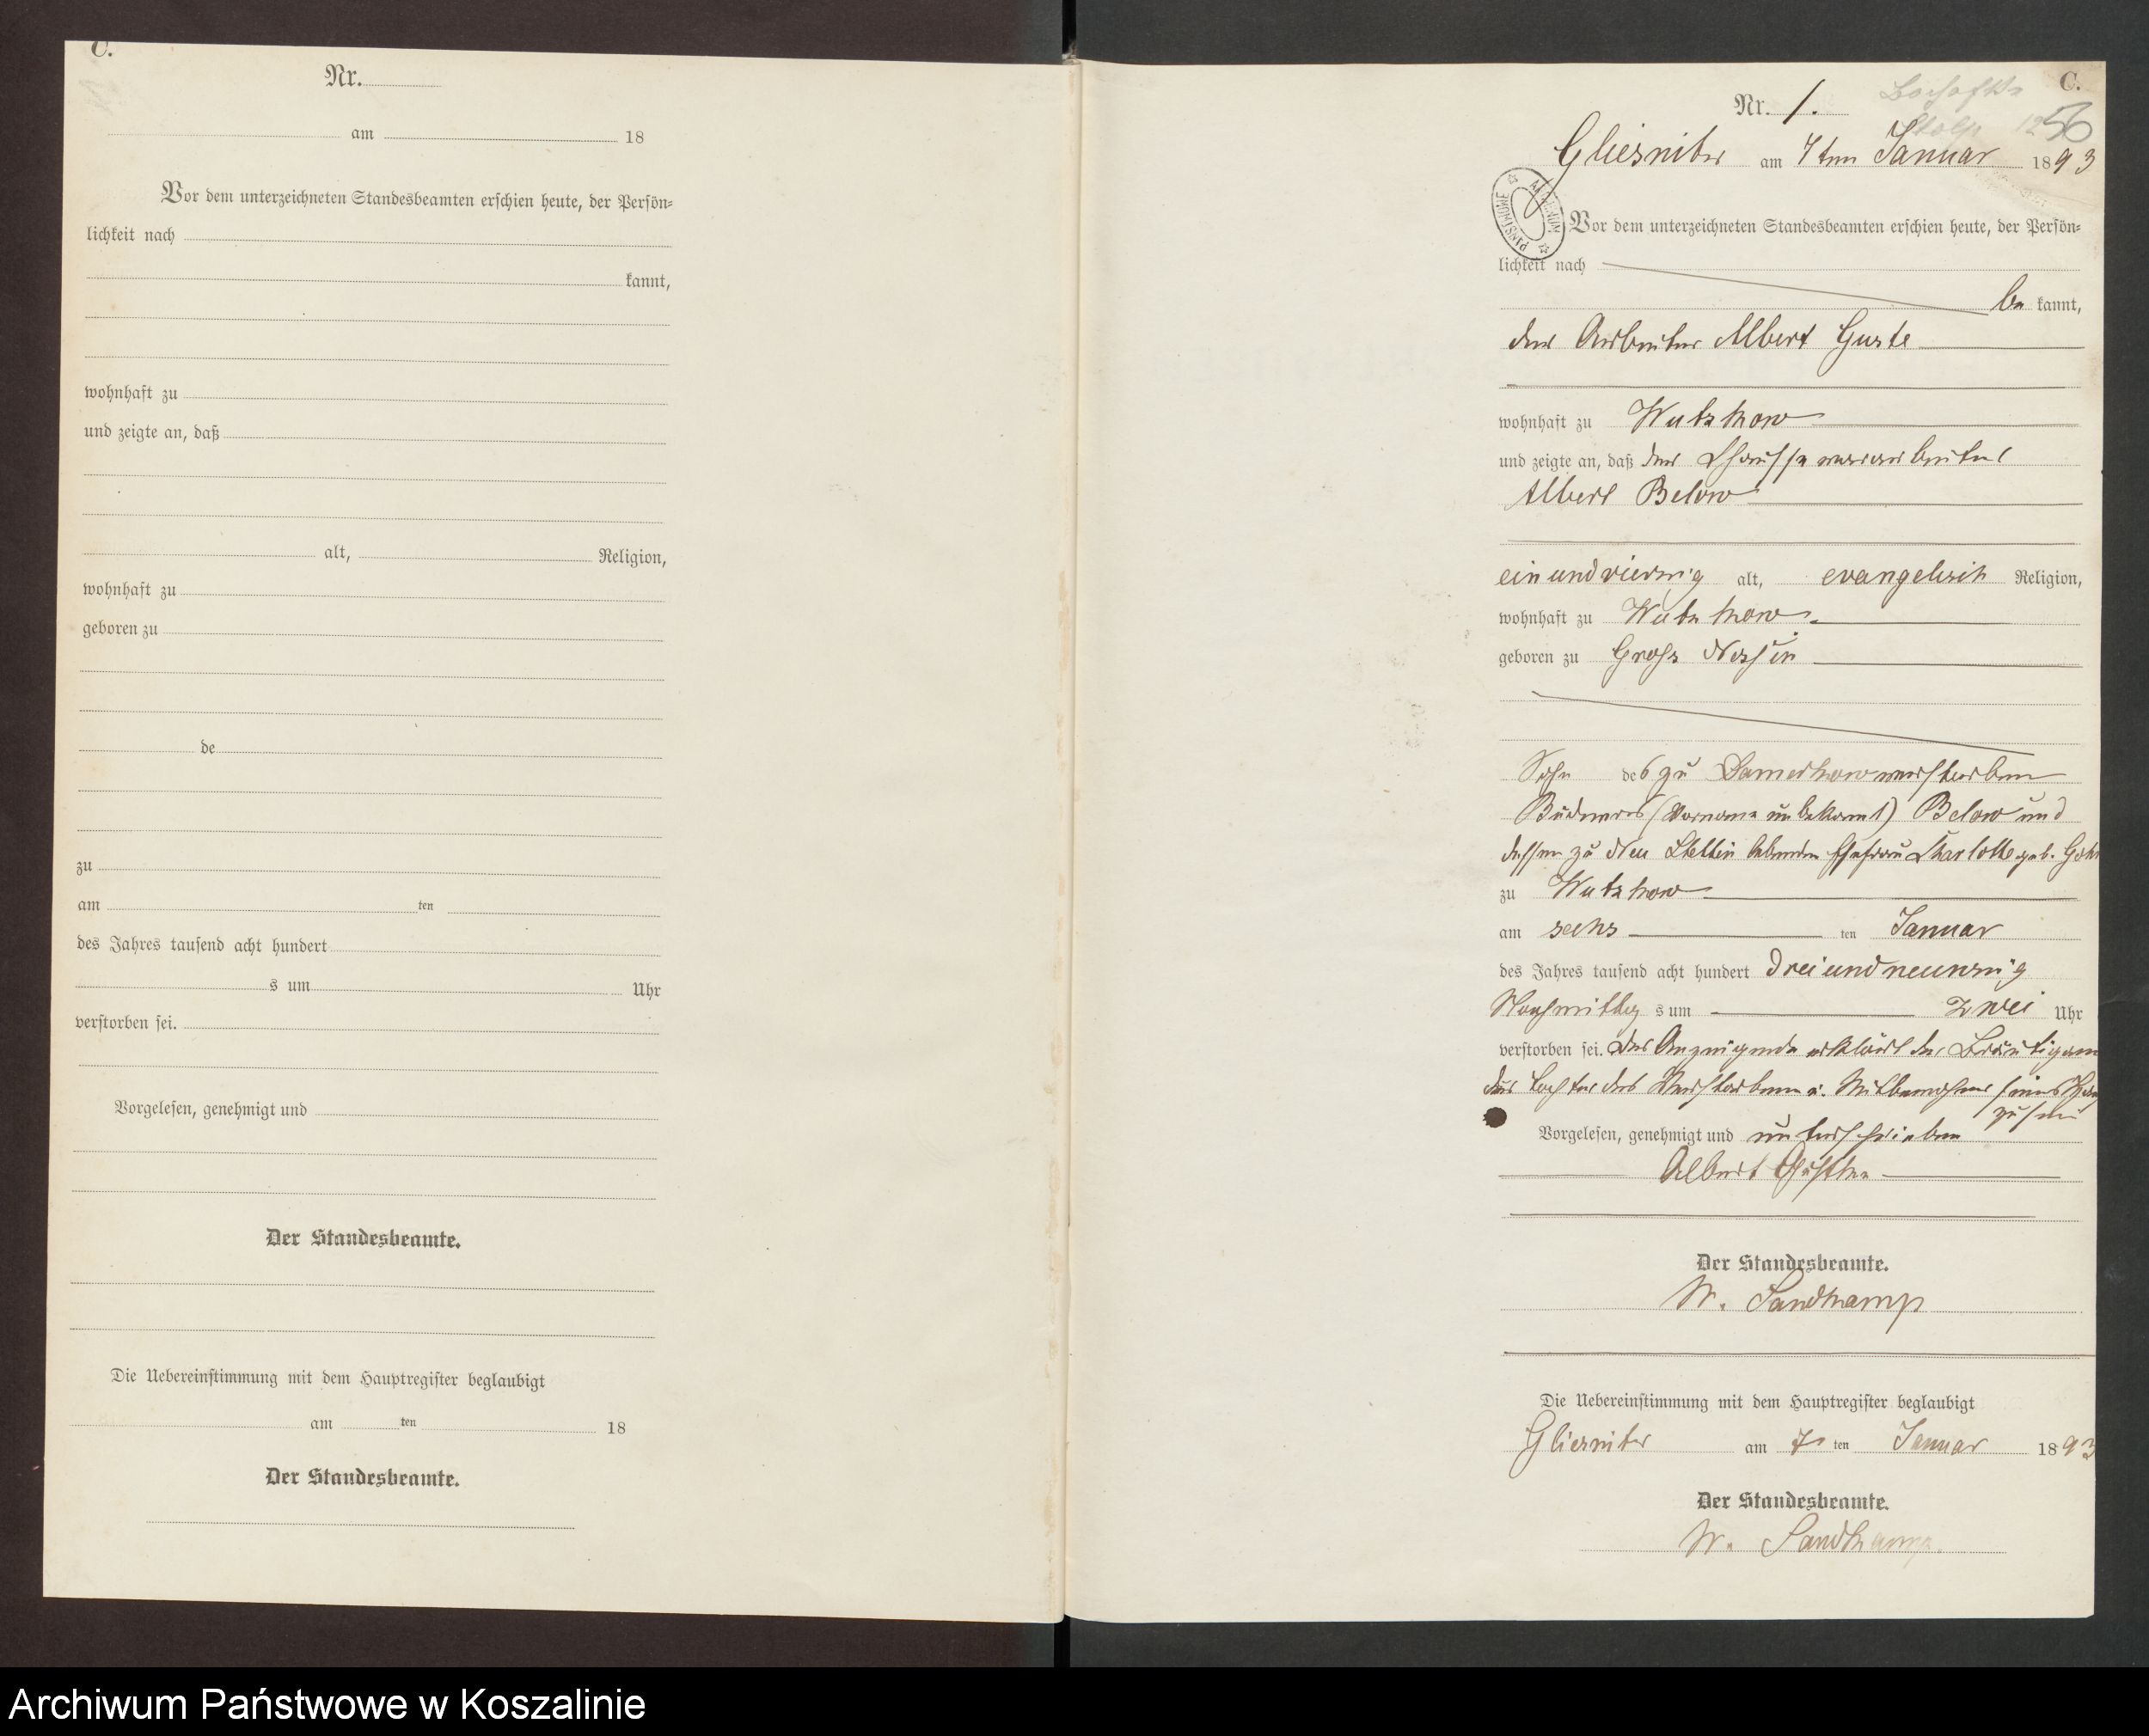 C.
Nr.
am 18
Vor dem unterzeichneten Standesbeamten erschien heute, der Persön=
lichkeit nach
kannt,
wohnhaft zu
und zeigte an, daß
alt, Religion,
wohnhaft zu
geboren zu
de
zu
am ten
des Jahres tausend acht hundert
s um Uhr
verstorben sei.
Vorgelesen, genehmigt und
Der Standesbeamte.
Die Uebereinstimmung mit dem Hauptregister beglaubigt
am ten 18
Der Standesbeamte.
C.
Nr. 1.
56
Gliesnitz am 7ten Januar 1893
ARCHIWUM PAŃSTWOWE
Vor dem unterzeichneten Standesbeamten erschien heute, der Persön=
lichkeit nach
be kannt,
der Arbeiter Albert Guste
wohnhaft zu Wutzkow
und zeigte an, daß der Chausseewararbeiter
Albert Below
einundvierzig alt, evangelisch Religion,
wohnhaft zu Wutzkow
geboren zu Gross Nossin
Sohn des zu Damerkow verstorbenen
Büdners (Vorname unbekannt) Below und
dessen zu Neu Stettin lebenden Ehefrau Charlotte geb.
zu Wutzkow
am sechs ten Januar
des Jahres tausend acht hundert dreiundneunzig
Nachmittag s um zwei Uhr
verstorben sei. Der Anzeigende erklärt der Bräutigam
der Tochter des Verstorbenen u. Mitbewohner seines
zu sein
Vorgelesen, genehmigt und unterschrieben
Albert
Der Standesbeamte.
W. Sandkamp
Die Uebereinstimmung mit dem Hauptregister beglaubigt
Gliesnitz am 7 ten Januar 1893
Der Standesbeamte.
W. Sandkamp.
Archiwum Państwowe w Koszalinie